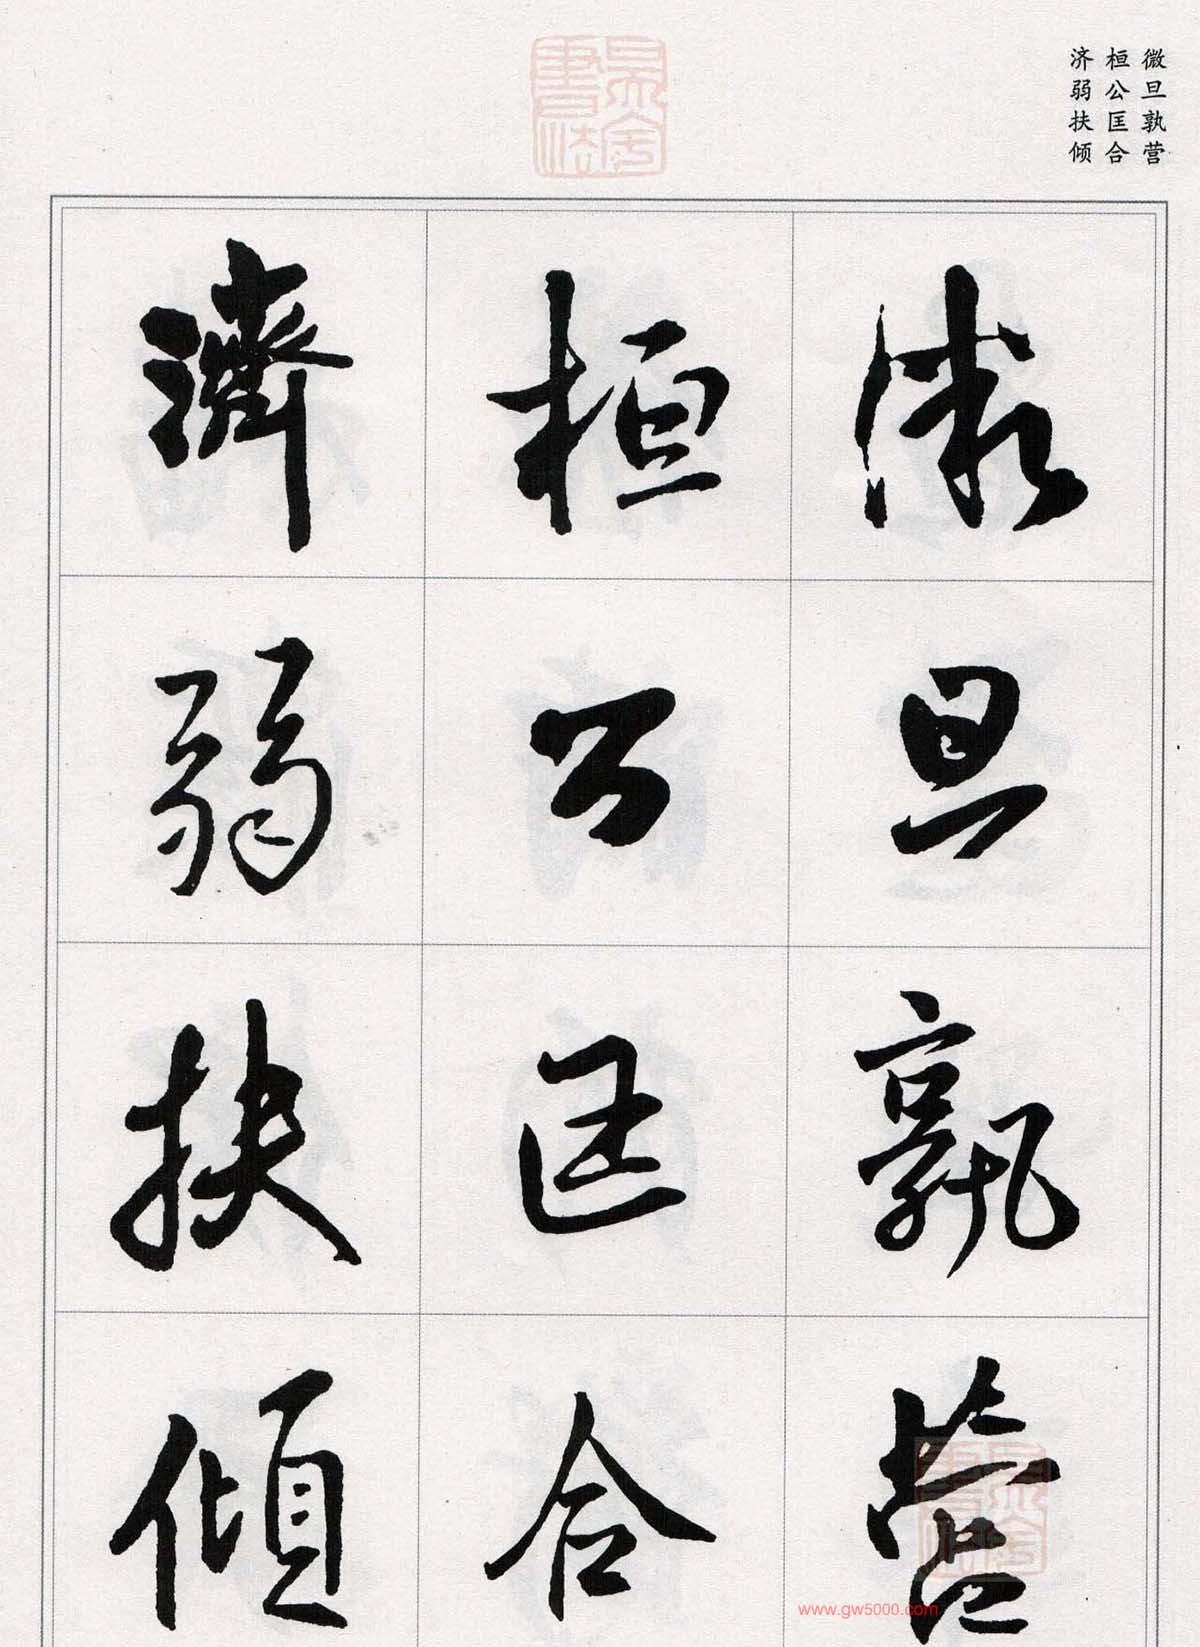 微旦孰营
桓公匡合
济弱扶倾
微旦孰營
桓公匡合
濟弱扶傾
www.gw5000.com